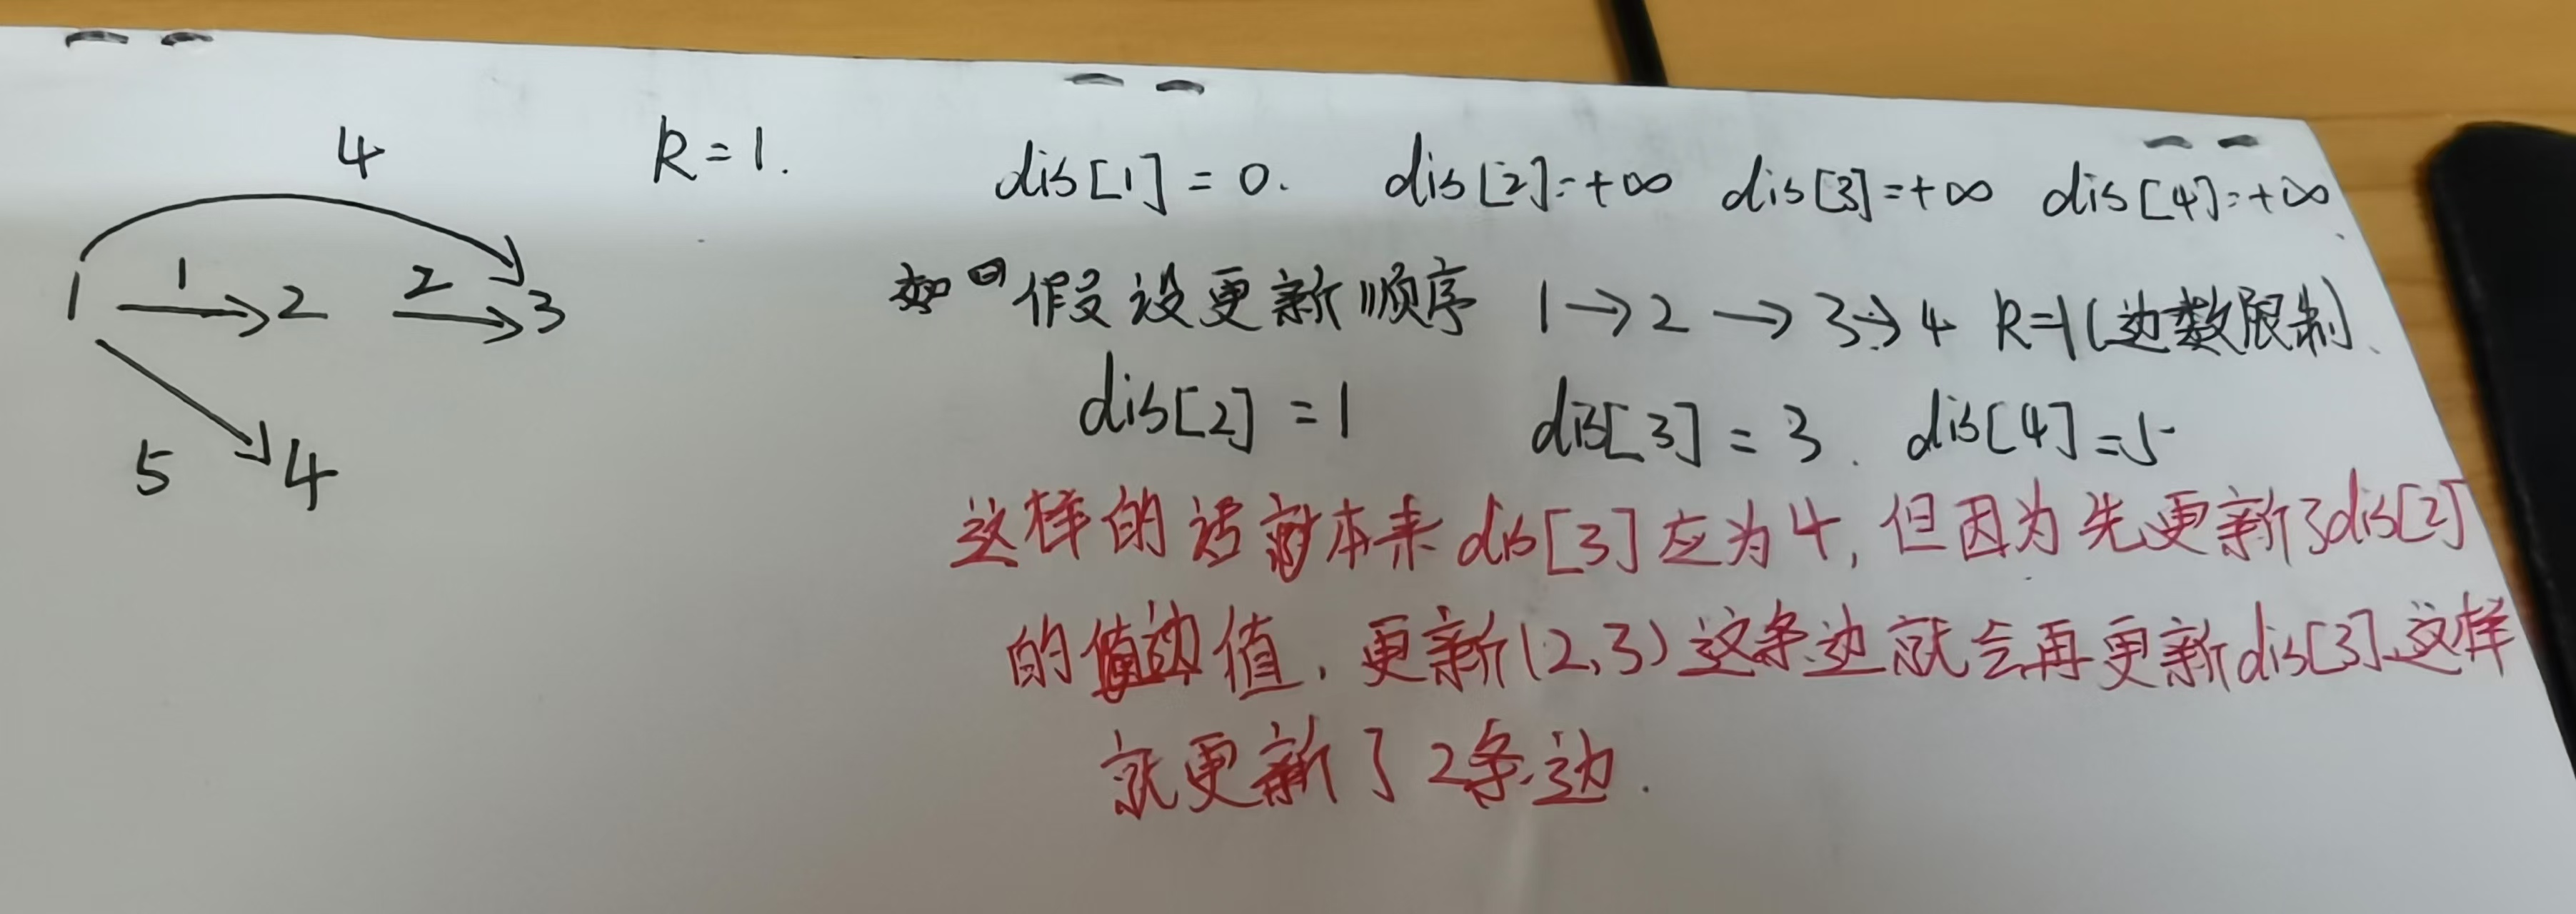 4
k=1.
1 1 2 2 3
5 4
dis[1]=0. dis[2]=+∞ dis[3]=+∞ dis[4]=+∞
假设更新顺序 1→2→3→4 k=1(边数限制)
dis[2]=1 dis[3]=3. dis[4]=5
这样的话本来dis[3]应为4,但因为先更新了dis[2]
的值,更新(2,3)这条边就会再更新dis[3]这样
就更新了2条边.